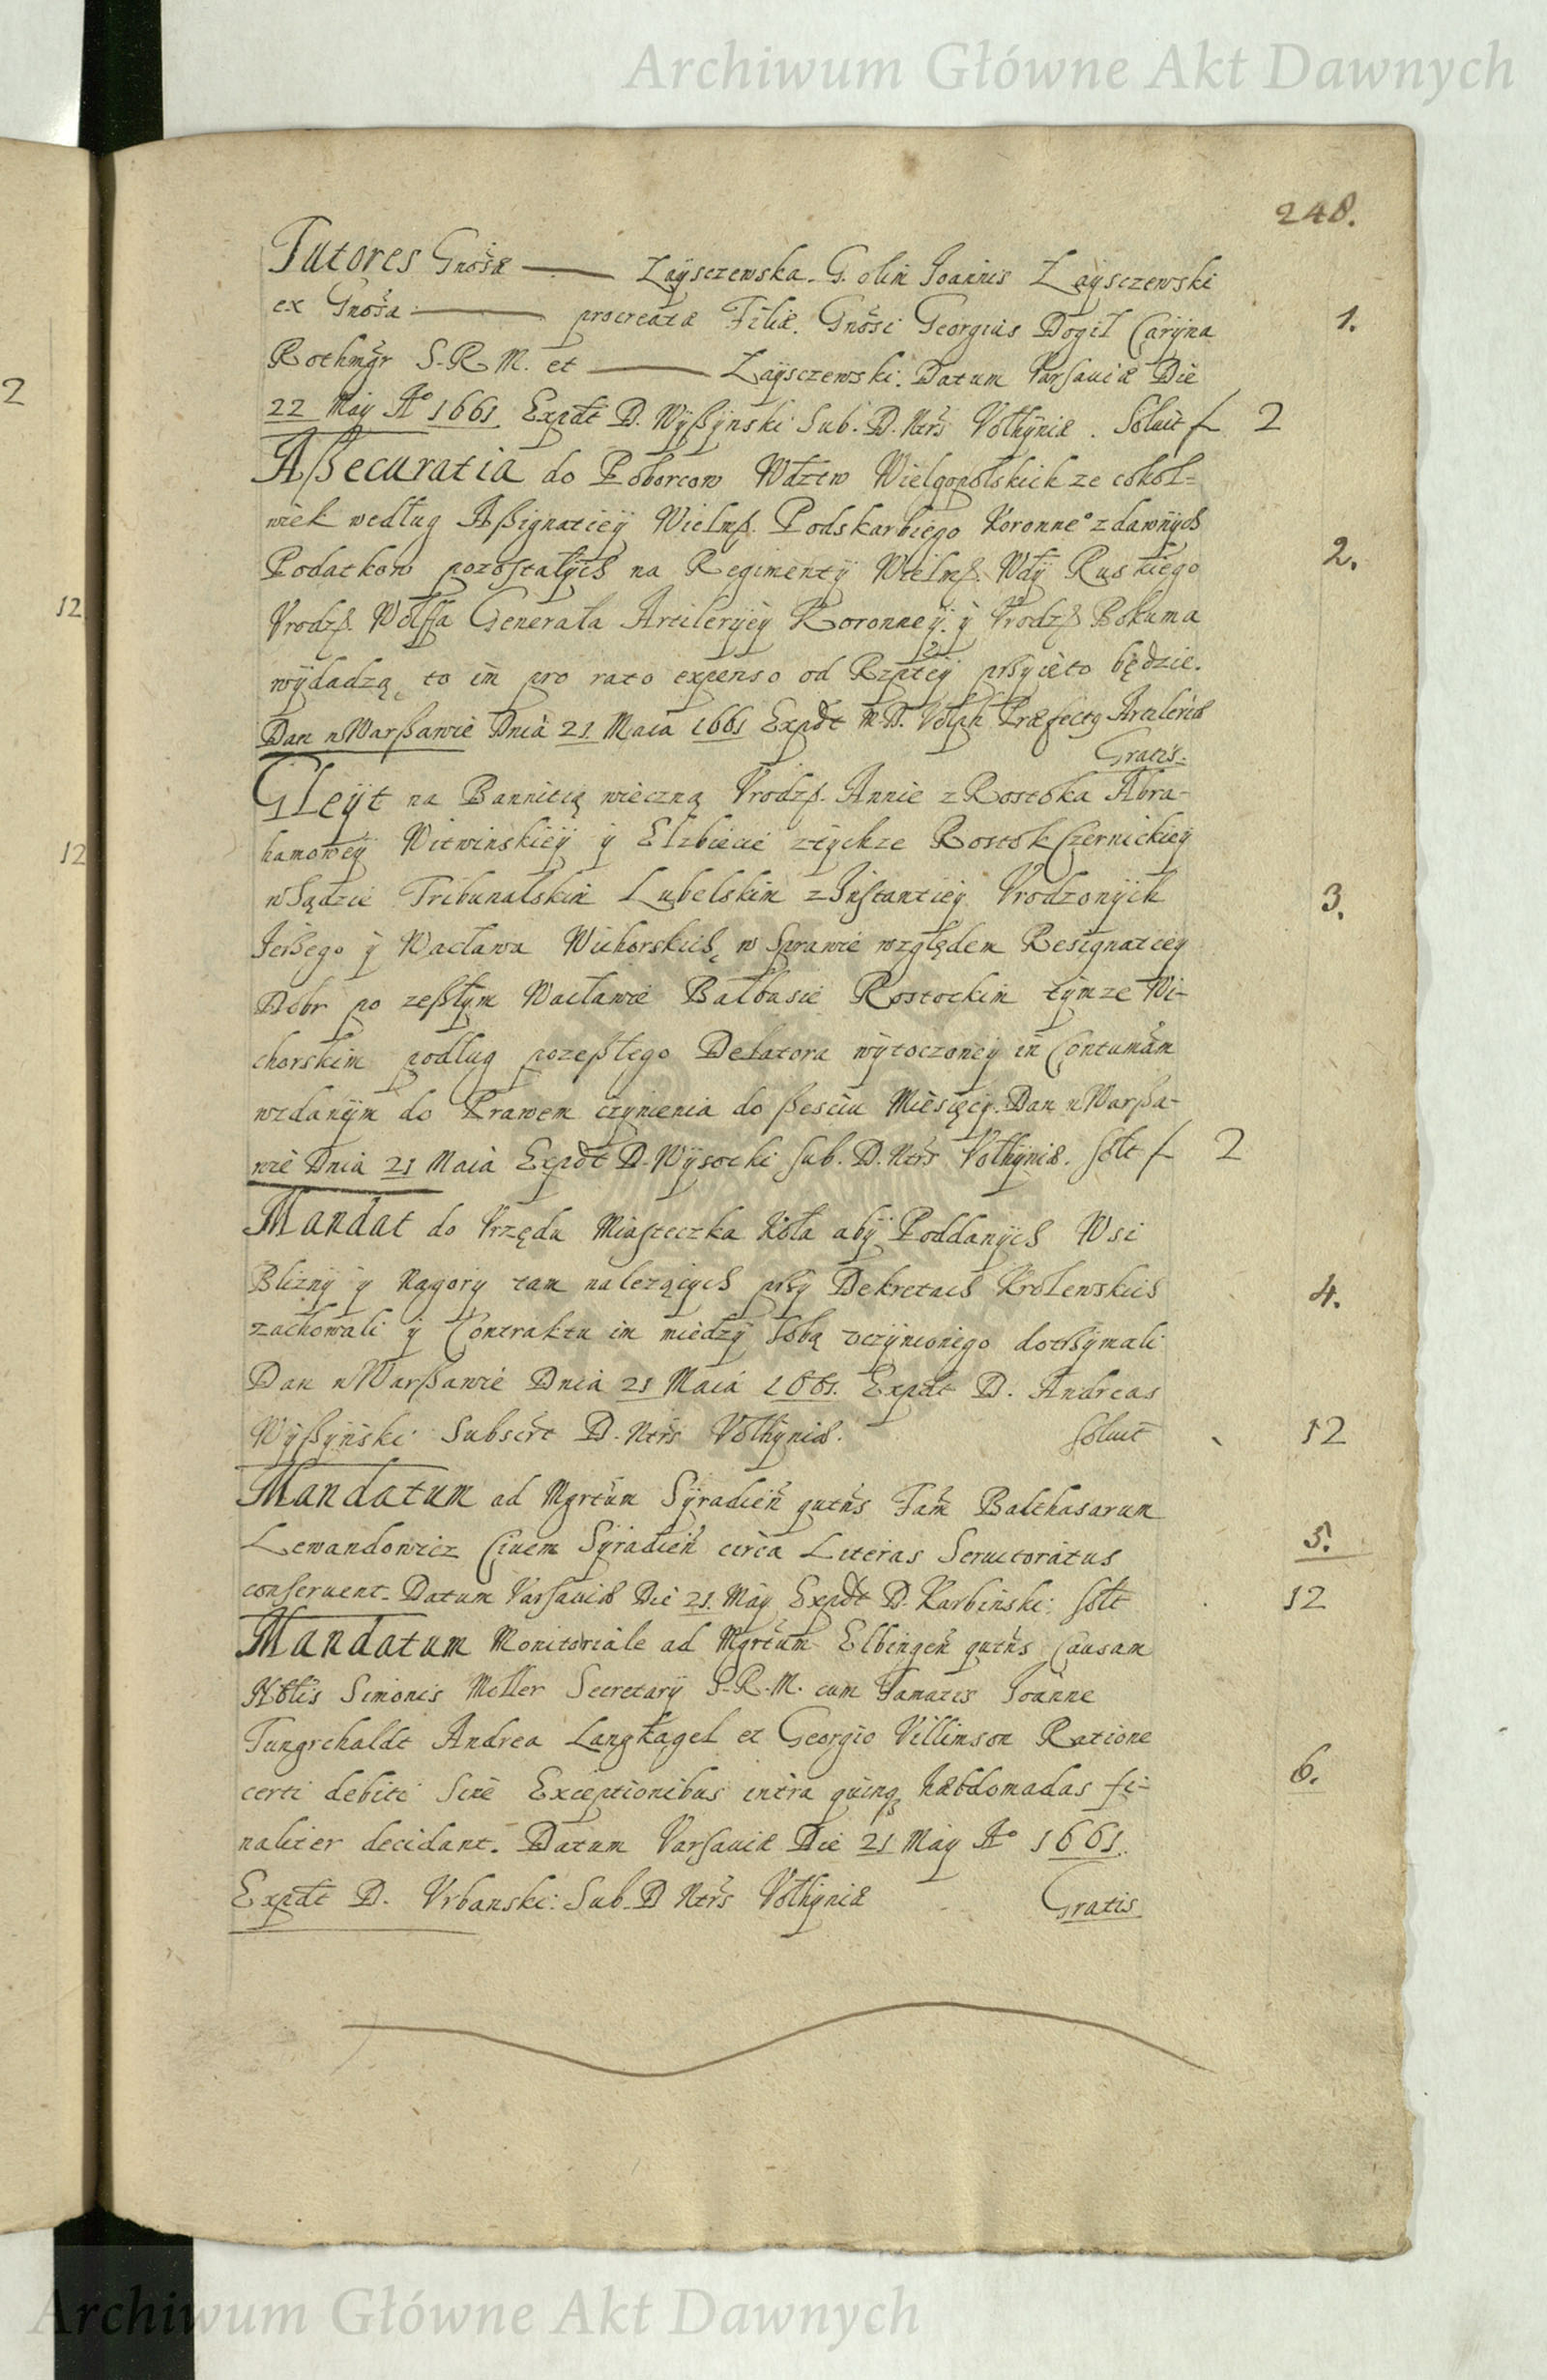 Archiwum Główne Akt Dawnych
248.
Tutores Gnosæ —— Zaÿsczewska. G. olim Joannis Zaÿsczewski
ex Gnosa —— procreatæ Filiæ. Gnosi Georgius Dogil Carÿna 1.
Rothmgr S. R. M. et —— Zaÿsczewski. Datum Varsauiæ Die
22 Maÿ Aº 1661. Expdt D. Wÿßÿnski Sub. D. Ntrs Volhÿniæ. Soluit f 2
Aßecuratia do Poborcow Wdztw Wielgopolskich ze cokol=
wiek według Aßignatieÿ Wielmß. Podskarbiego Koronneº z dawnÿch
Podatkow pozostałÿch na Regimentÿ Wielmß. Wdÿ Ruskiego 2.
Vrodzß. Wolffa Generała Artilerÿeÿ Koronneÿ. ÿ Vrodzß Bokuma
wÿdadzą to im pro rato expenso od Rzpteÿ prziÿęto będzie.
Dan w Warßawie Dnia 21 Maia 1661 Expdt M. D. Volph Præfectg Artileriæ
Gratis.
Gleÿt na Bannitią wieczną Vrodzß. Annie z Rostoka Abra-
hamoweÿ Witwinskieÿ ÿ Elzbiecie z tÿchze Rostok Czernickieÿ
w Sądzie Tribunalskim Lubelskim z Instantieÿ Vrodzonÿch 3.
Jerzego ÿ Wacława Wichorskich, w Sprawie względem Resignatieÿ
Dobr po zeßłÿm Wacławie Bałbasie Rostockim tÿmze Wi-
chorskim podług pozeßłego Delatora wÿtoczoneÿ in Contumam
wzdanÿm do Prawem czÿnienia do ßesciu Miesięcÿ. Dan w Warßa-
wie Dnia 21 Maia Expdt D. Wÿsocki Sub. D. Ntrs Volhÿniæ. Solt f 2
Mandat do Vrzędu Miasteczka Koła abÿ Poddanÿch Wsi
Bliznÿ ÿ Nagorÿ tam nalezącÿch przÿ Dekretach Krolewskich 4.
zachowali ÿ Contraktu im miedzÿ sobą vczÿnionego dotrzÿmali
Dan w Warßawie Dnia 21 Maia 1661. Expdt D. Andreas
Wÿßÿnski Subscrt D. Ntrs Volhÿniæ. Soluit 12
Mandatum ad Mgrtum Sÿradien qutns Fam Balthasarum
Lewandowicz Ciuem Sÿradien circa Literas Seruitoratus 5.
conseruent. Datum Varsauiæ Die 21. Maÿ Expdt D. Karbinski Solt 12
Mandatum Monitoriale ad Mgrtum Elbingen qutns Causam
Nblis Simonis Meller Secretarÿ S. R. M. cum Famatis Joanne
Tungrchaldt Andrea Langkagel et Georgio Villimson Ratione
certi debiti Sine Exceptionibus intra quinq hæbdomadas fi- 6.
naliter decidant. Datum Varsauiæ Die 21 Maÿ Aº 1661.
Expdt D. Vrbanski: Sub. D Ntrs Volhÿniæ Gratis
2
12
12
Archiwum Główne Akt Dawnych